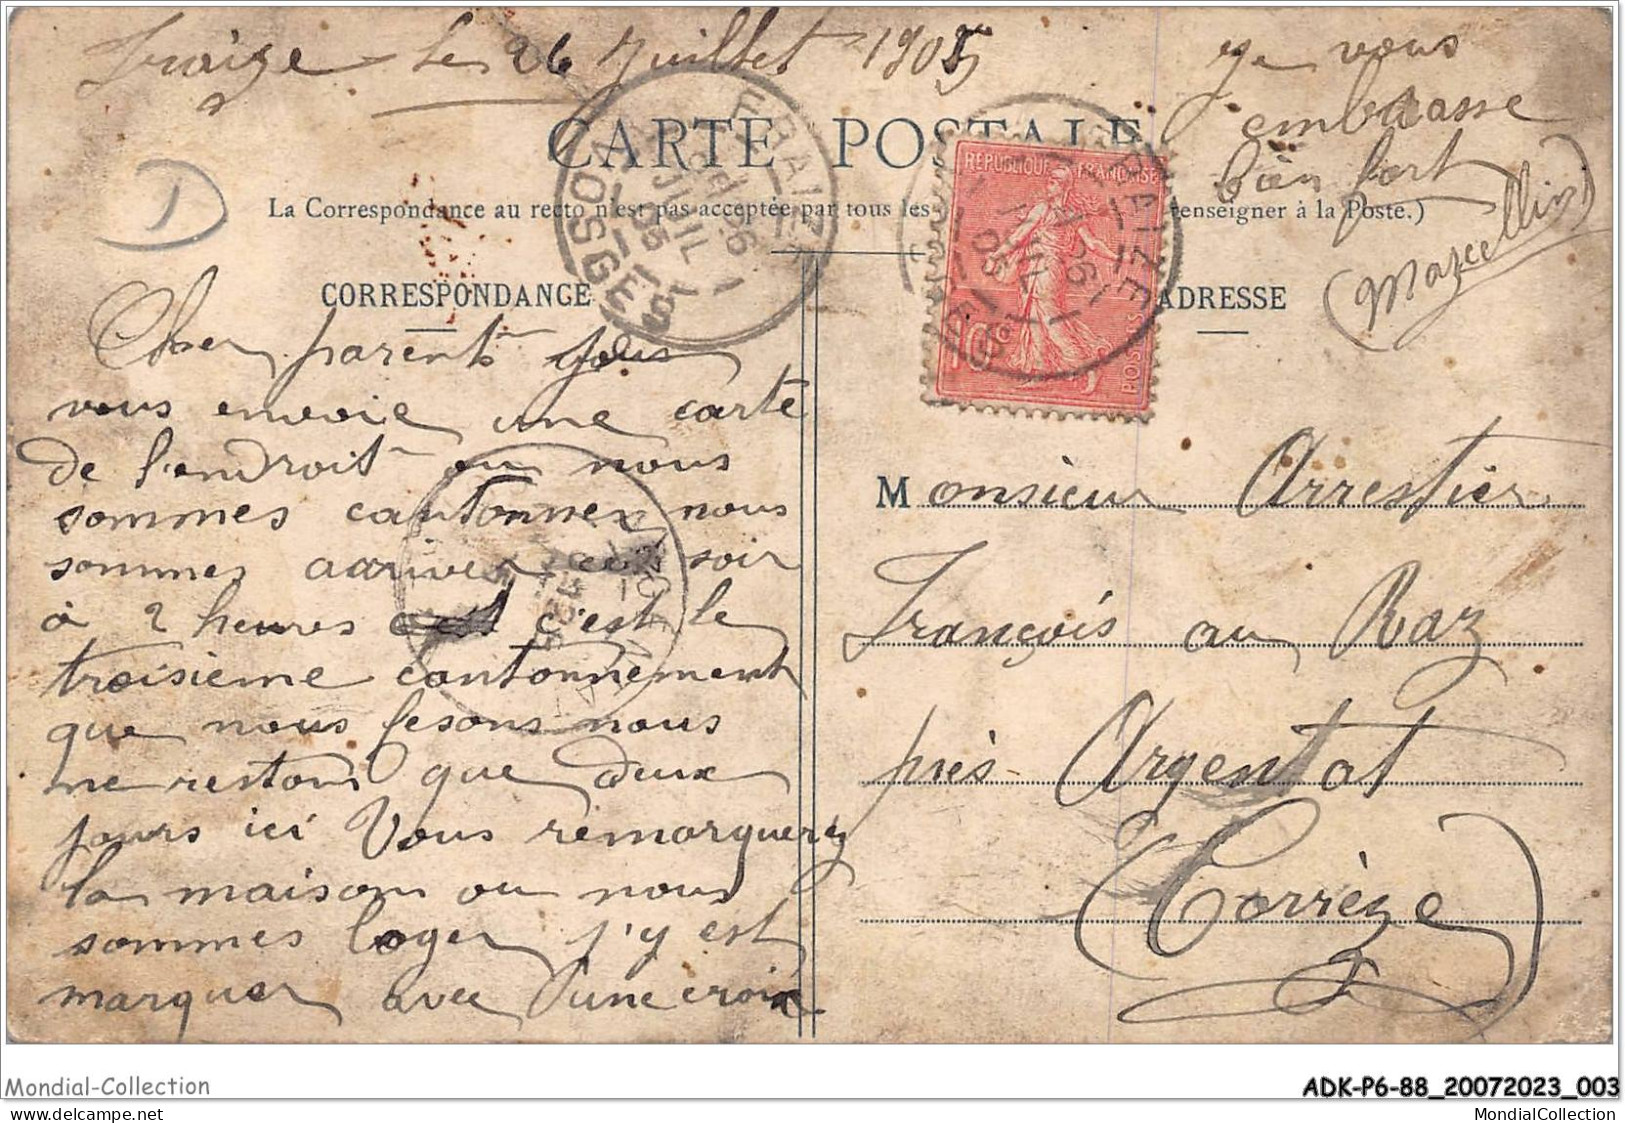 Fraize le 26 Juillet 1905
je vous
embrasse
bien fort
Marcellin
CARTE POSTALE
La Correspondance au recto n'est pas acceptée par tous les
enseigner à la Poste.)
D
FRAIZE
VOSGES
26
JUIL
05
REPUBLIQUE FRANÇAISE
10c
POSTES
CORRESPONDANCE
ADRESSE
Cher parents Je
vous envoie une carte
de l'endroit ou nous
sommes cantonner nous
sommes arriver ce soir
à 2 heures c'est le
troisieme cantonnement
que nous fesons nous
ne restons que deux
jours ici Vous remarquerez
la maison ou nous
sommes loger j'y est
marquer avec d'une croix
Monsieur Arrestier
François au Raz
près Argentat
Corrèze
Mondial-Collection
ADK-P6-88_20072023_003
MondialCollection